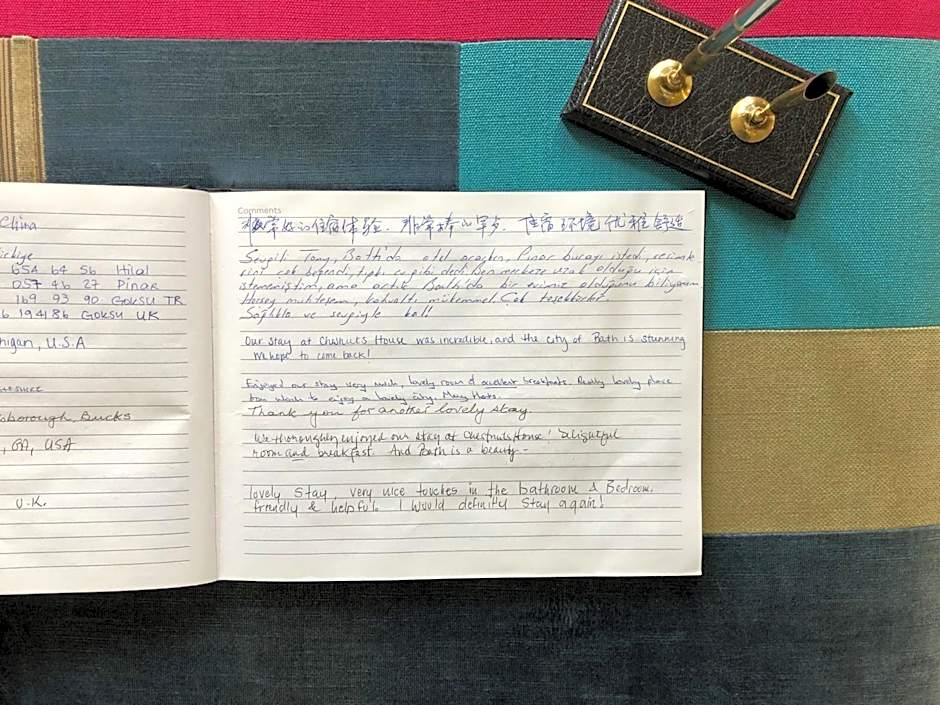 China
654 64 56 Hilal
057 46 27 Pinar
169 93 90 GOKSU TR
194186 GOKSU UK
higan, U.S.A
sborough, Bucks
, GA, USA
U.K.
Comments
非常好的住宿体验. 非常棒的早点. 住宿环境优雅舒适
Sevgili Tony, Bath'da otel ararken, Pınar burayı istedi, resimle
rini çok beğendi, tıpkı ev gibi dedi. Ben merkeze uzak olduğu için
istememiştim, ama artık Bath'da bir evimiz olduğunu biliyorum.
Herşey muhteşem, kahvaltı mükemmel. Çok teşekkürler
Sağlıkla ve sevgiyle kal!
Our stay at Chesnuts House was incredible, and the city of Bath is stunning
We hope to come back!
Enjoyed our stay very much, lovely room & excellent breakfasts. Really lovely place
from which to enjoy a lovely city. Many thanks.
Thank you for another lovely stay.
We thoroughly enjoyed our stay at Chestnuts House! Delightful
room and breakfast. And Bath is a beauty -
lovely stay, very nice touches in the bathroom & Bedroom.
friendly & helpful. I would definitly stay again!